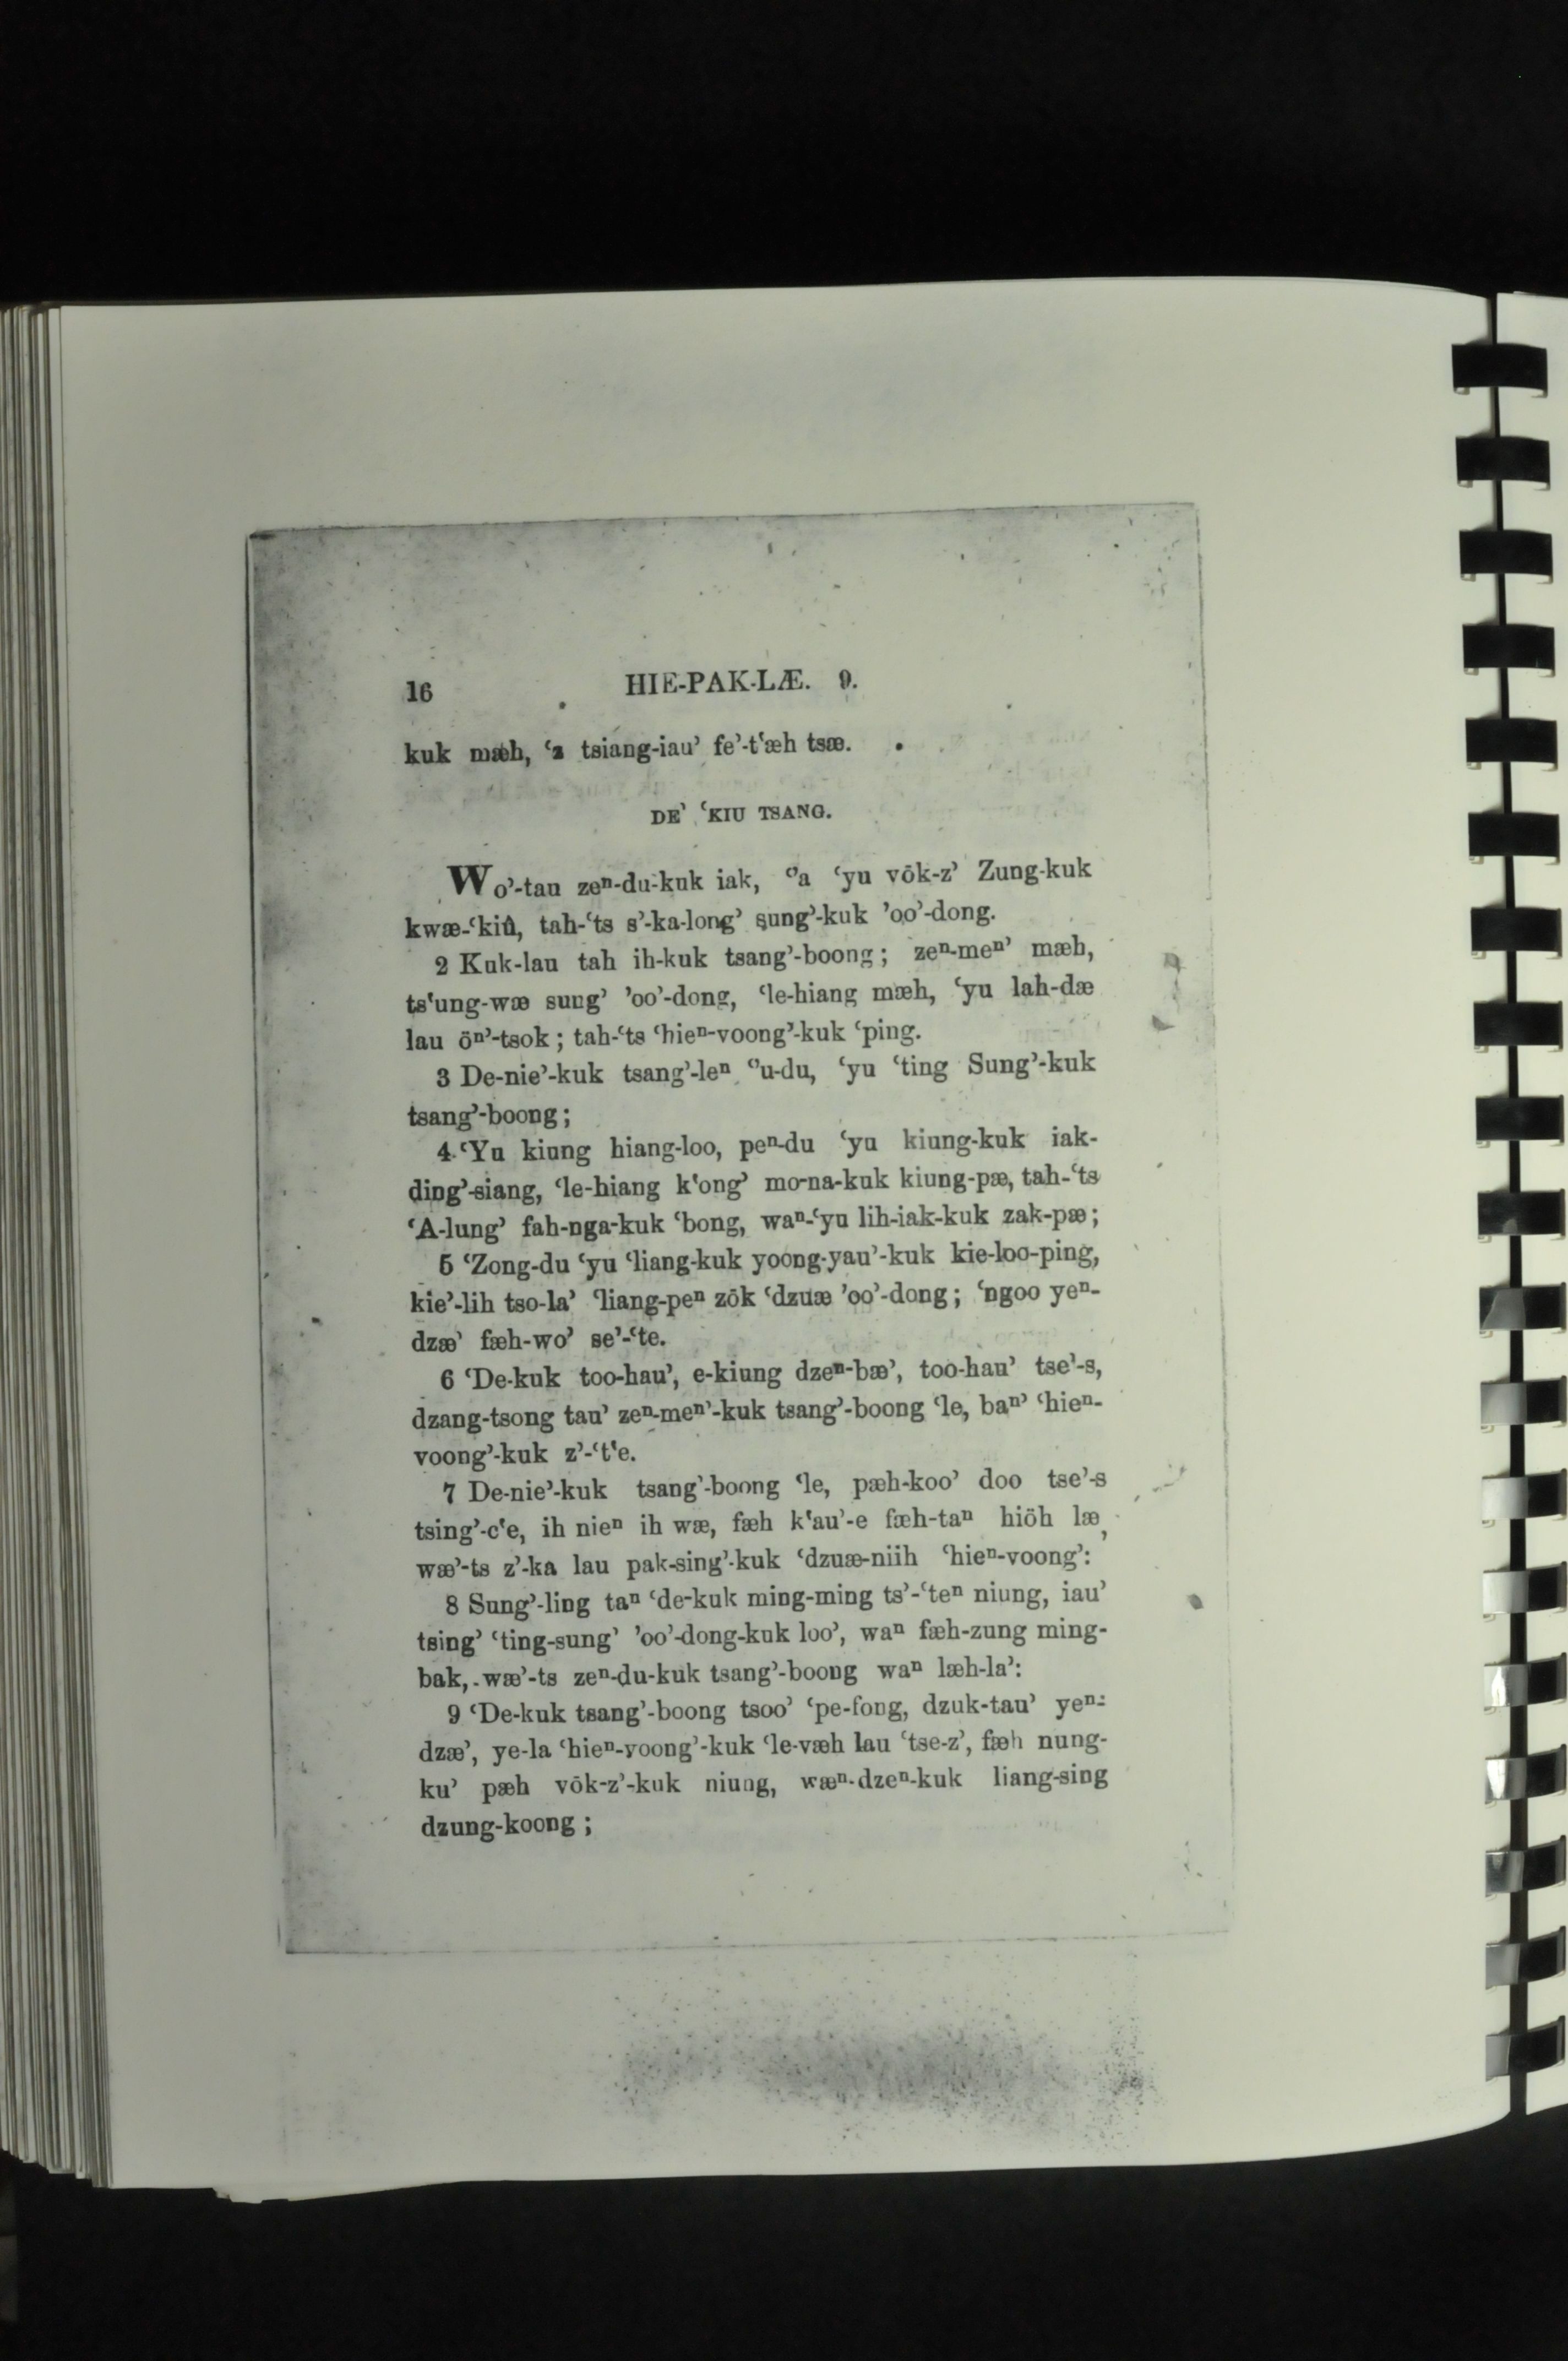 16 HIE-PAK-LÆ. 9.
kuk mæh, ʻz tsiang-iau’ fe’-tʻæh tsæ.
DE’ ʻKIU TSANG.
Wo’-tau zeⁿ-du-kuk iak, ʻʼa ʻyu vōk-z’ Zung-kuk
kwæ-ʻkiû, tah-ʻts s’-ka-long’ sung’-kuk ’oo’-dong.
2 Kuk-lau tah ih-kuk tsang’-boong; zeⁿ-meⁿ’ mæh,
tsʻung-wæ sung’ ’oo’-dong, ʻle-hiang mæh, ʻyu lah-dæ
lau öⁿ’-tsok; tah-ʻts ʻhieⁿ-voong’-kuk ʻping.
3 De-nie’-kuk tsang’-leⁿ ʻʼu-du, ʻyu ʻting Sung’-kuk
tsang’-boong;
4 ʻYu kiung hiang-loo, peⁿ-du ʻyu kiung-kuk iak-
ding’-siang, ʻle-hiang kʻong’ mo-na-kuk kiung-pæ, tah-ʻts
ʻA-lung’ fah-nga-kuk ʻbong, waⁿ-ʻyu lih-iak-kuk zak-pæ;
5 ʻZong-du ʻyu ʻliang-kuk yoong-yau’-kuk kie-loo-ping,
kie’-lih tso-la’ ʻliang-peⁿ zōk ʻdzuæ ’oo’-dong; ʻngoo yeⁿ-
dzæ’ fæh-wo’ se’-ʻte.
6 ʻDe-kuk too-hau’, e-kiung dzeⁿ-bæ’, too-hau’ tse’-s,
dzang-tsong tau’ zeⁿ-meⁿ’-kuk tsang’-boong ʻle, baⁿ’ ʻhieⁿ-
voong’-kuk z’-ʻtʻe.
7 De-nie’-kuk tsang’-boong ʻle, pæh-koo’ doo tse’-s
tsing’-cʻe, ih nieⁿ ih wæ, fæh kʻau’-e fæh-taⁿ hiöh læ,
wæ’-ts z’-ka lau pak-sing’-kuk ʻdzuæ-niih ʻhieⁿ-voong’:
8 Sung’-ling taⁿ ʻde-kuk ming-ming ts’-ʻteⁿ niung, iau’
tsing’ ʻting-sung’ ’oo’-dong-kuk loo’, waⁿ fæh-zung ming-
bak, wæ’-ts zeⁿ-du-kuk tsang’-boong waⁿ læh-la’:
9 ʻDe-kuk tsang’-boong tsoo’ ʻpe-fong, dzuk-tau’ yeⁿ-
dzæ’, ye-la ʻhieⁿ-voong’-kuk ʻle-væh lau ʻtse-z’, fæh nung-
ku’ pæh vōk-z’-kuk niung, wæⁿ-dzeⁿ-kuk liang-sing
dzung-koong;